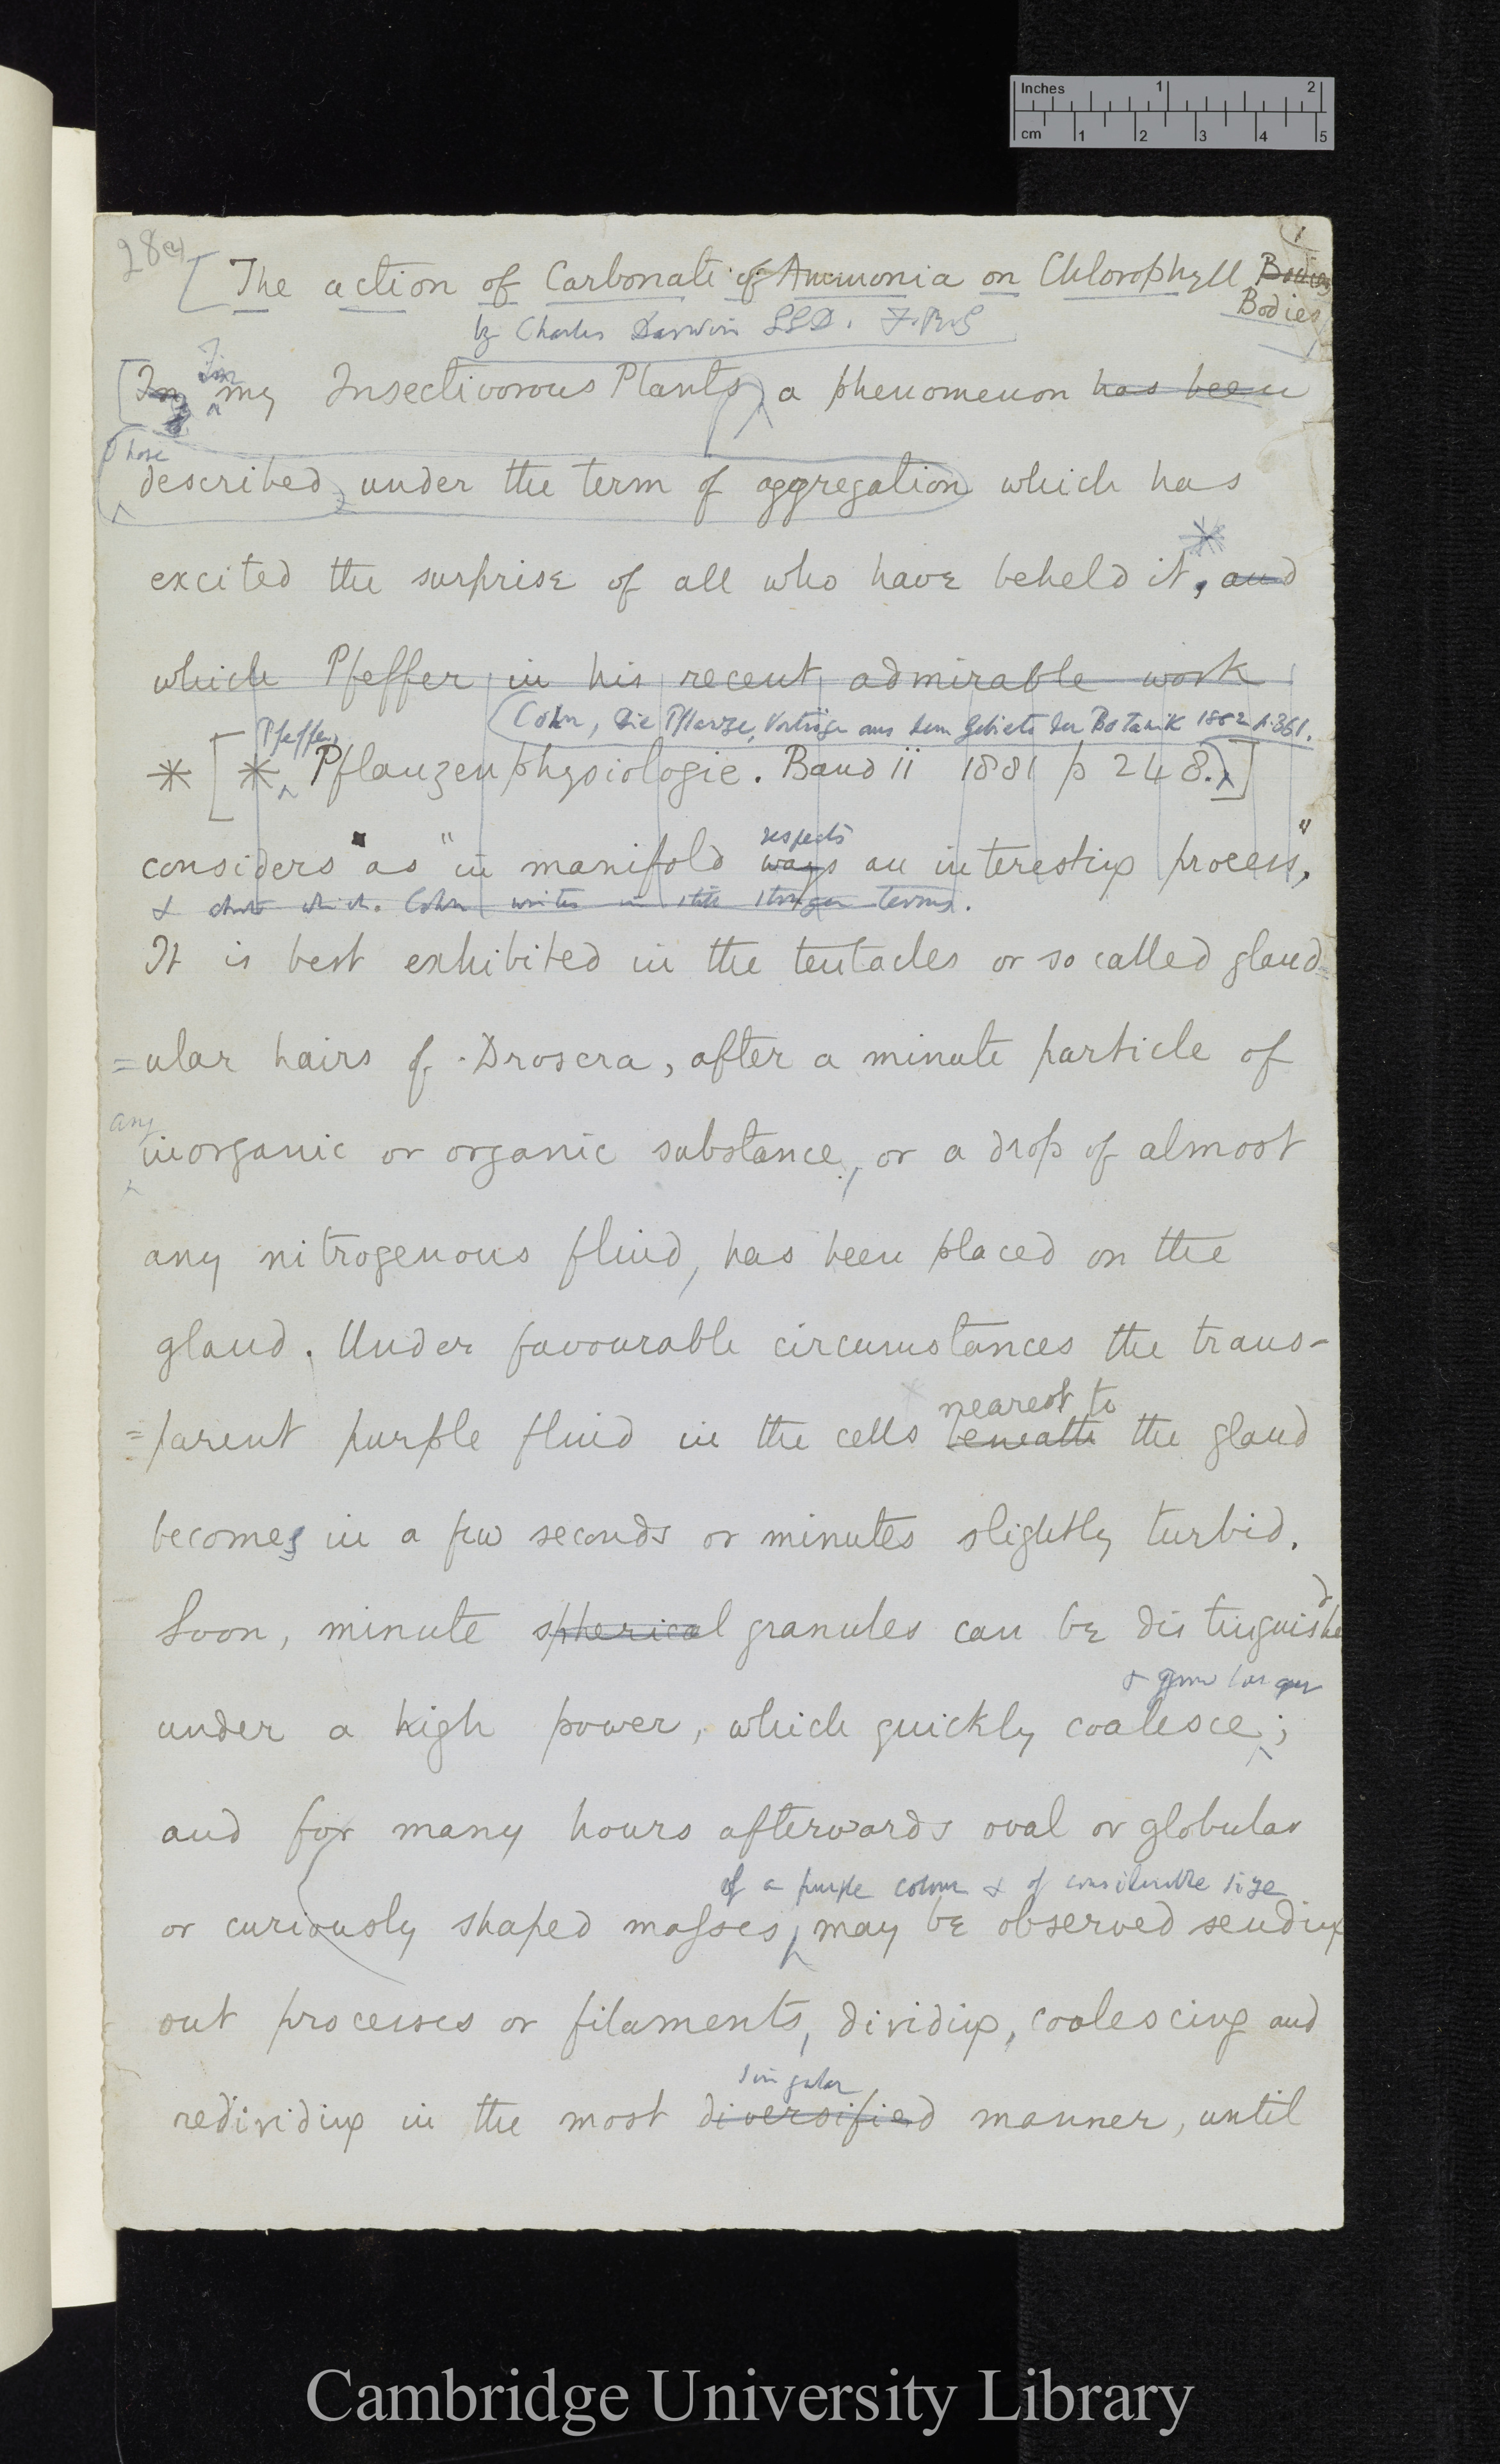 Inches 1 2
cm 1 2 3 4 5
28(a)
[The action of Carbonate of Ammonia on Chlorophyll Bodies
Bodies
by Charles Darwin LLD. F.R.S
[In In my Insectivorous Plants, a phenomenon has been
described, under the term of aggregation which has
excited the surprise of all who have beheld it*, and
which Pfeffer in his recent admirable work
Cohn, Die Pflanze, Vorträge aus dem Gebiete der Botanik 1882 p. 361.
Pfeffer
* [* Pflanzenphysiologie. Band ii 1881 p 248.]
respects
considers as "in manifold ways an interesting process",
& which Cohn writes in still stronger terms.
It is best exhibited in the tentacles or so called gland-
=ular hairs of Drosera, after a minute particle of
any
inorganic or organic substance, or a drop of almost
any nitrogenous fluid, has been placed on the
gland. Under favourable circumstances the trans-
nearest to
=parent purple fluid in the cells beneath the gland
becomes in a few seconds or minutes slightly turbid.
Soon, minute spherical granules can be distinguished
& grow larger
under a high power, which quickly coalesce;
and for many hours afterwards oval or globular
of a purple colour & of considerable size
or curiously shaped masses, may be observed sending
out processes or filaments, dividing, coalescing and
singular
redividing in the most diversified manner, until
Cambridge University Library